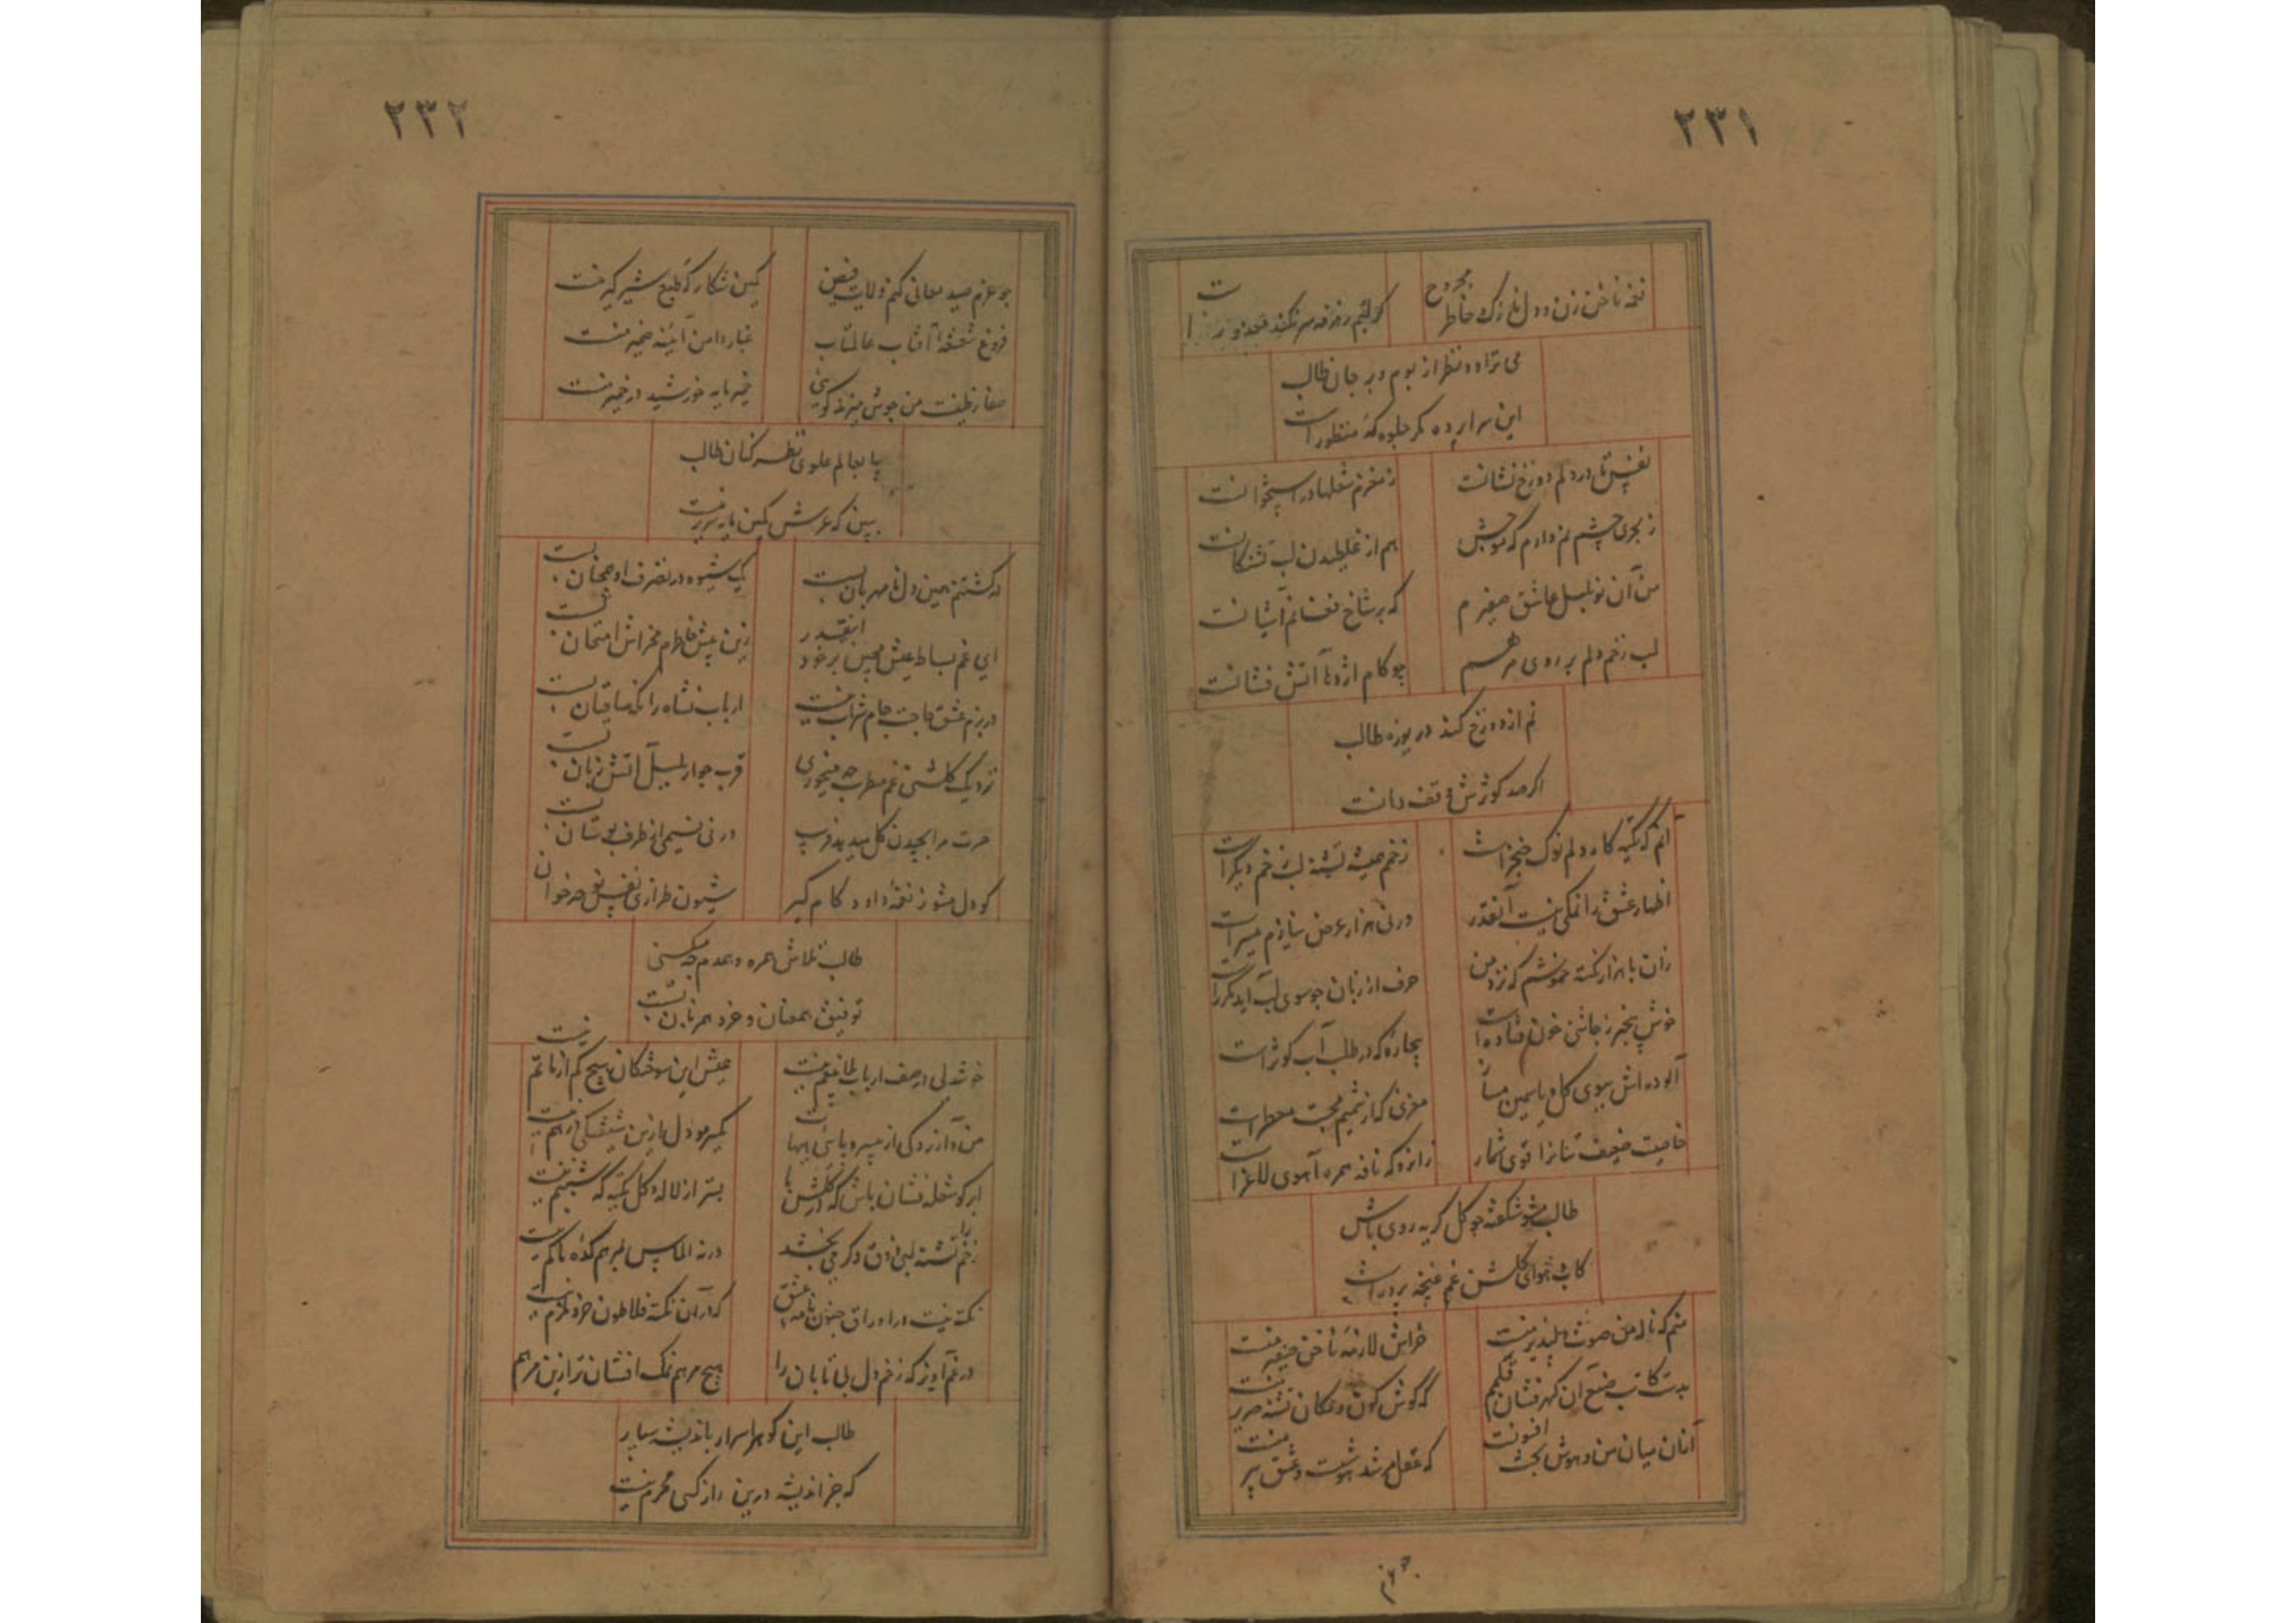 ۲۳۱
نغمه ناخن زن و دل نازک خاطر مجروح
می تراود نظر از بوم و بر جان طالب
این سراپرده مگر جلوه که منظور است
نفس تا در دلم دوزخ نشانست ز مغزم شعلها در استخوانست
ز بحری چشم نم دارم که موجش هم از غلطیدن لب تشنکانست
من آن نو بلبل عاشق صفیرم که بر شاخ فغانم آشیانست
لب زخم دلم بر روی مرهم چو کام اژدها آتش فشانست
نم از دوزخ کند دریوزه طالب
اکر صد کوثرش وقف دهانست
آنم که تکیه کاه دلم نوک خنجر است زخمم همیشه تشنه لب زخم دیکر است
اظهار عشق را نمکی نیست آنقدر ورنی هزار عرض نیازم میسر است
زان با هزار نکته خموشم که نزد من حرف از زبان چو سوی لب آید مکرر است
خوش بیخبر ز چاشنی خون فتاده است بیچاره که در طلب آب کوثر است
آلوده اش ببوی کل و یاسمین مساز مغزی که از شمیم محبت معطر است
خاصیت ضعیف تنانرا قوی شمار زانرو که نافه همره آهوی لاغر است
طالب مشو شکفته چو کل کریه روی باش
کاب و هوای کلشن غم غنچه پرور است
منم که ناله من صوت دلپذیر منست خراش لازمه ناخن صفیر منست
بدست کاتب صنع آن کهرفشان قلمم که کوش کون و مکان تشنه صریر منست
از آن میان من و هوش بحث افزونست که عقل مرشد هوشست و عشق پیر منست
چو عزم
۲۳۲
چو عزم صید معانی کنم ولایت فیض کمین شکار که طبع شیر کیر منست
فروغ شعشعه آفتاب عالمتاب غبار دامن آئینه ضمیر منست
صفا ز طینت من جوش میزند کوئی خمیر مایه خورشید در خمیر منست
بیا بعالم علوی نظر کنان طالب
ببین که عرش کمین پایه سریر منست
در کشتنم همین دل نامهربان بست یک شیوه در تصرف او جهان بست
ای غم بساط عیش مچین بر خود اینقدر زین بیش خاطرم مخراش امتحان بست
در بزم عشق حاجت جام شراب نیست ارباب نشاه را نکه ساقیان بست
نزدیک کلشنی غم مطرب چه میخوری قرب جوار بلبل آتش زبان بست
حسرت مرا بچیدن کل میدهد فریب ورنی نسیمی از طرف بوستان بست
کو دل مشو ز نغمه داود کام کیر شیون طرازی نفس نوحه خوان
طالب تلاش همره و همدم چه میکنی
توفیق همعنان و خرد همزبان بست
خوشدلی در صف ارباب الم غم نیست عیش این سوختکان هیچ کم از ماتم نیست
من و آزردکی از بیسر و پائیها
ابر کو شعله فشان باش که در کلشن ما بستر از لاله و کل تکیه که شبنم نیست
زخم را تشنه لبی ذوق دکر می بخشد ورنه الماس نیز هم کده ما کم نیست
نکته نیست در اوراق جنون نامه عشق که در آن نکته فلاطون خرد ملزم نیست
در غم آویز که زخم دل بی تابان را هیچ مرهم نمک افشان تر ازین مرهم
طالب این کوهر اسرار باندیشه سپار
که جز اندیشه درین راز کسی محرم نیست